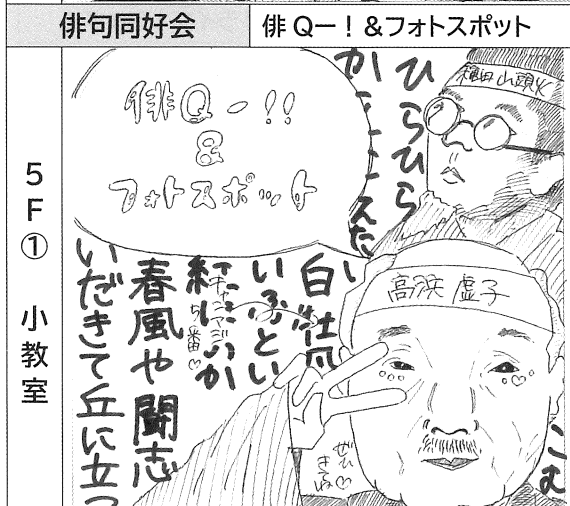 俳句同好会
俳Qー！&フォトスポット
5F① 小教室
俳Qー!!
&
フォトスポット
種田山頭火
ひらひら
高浜虚子
白牡丹
いふとい
紅ほのか
春風や闘志
いだきて丘に立つ
ぜひ♡
きてね
こむ